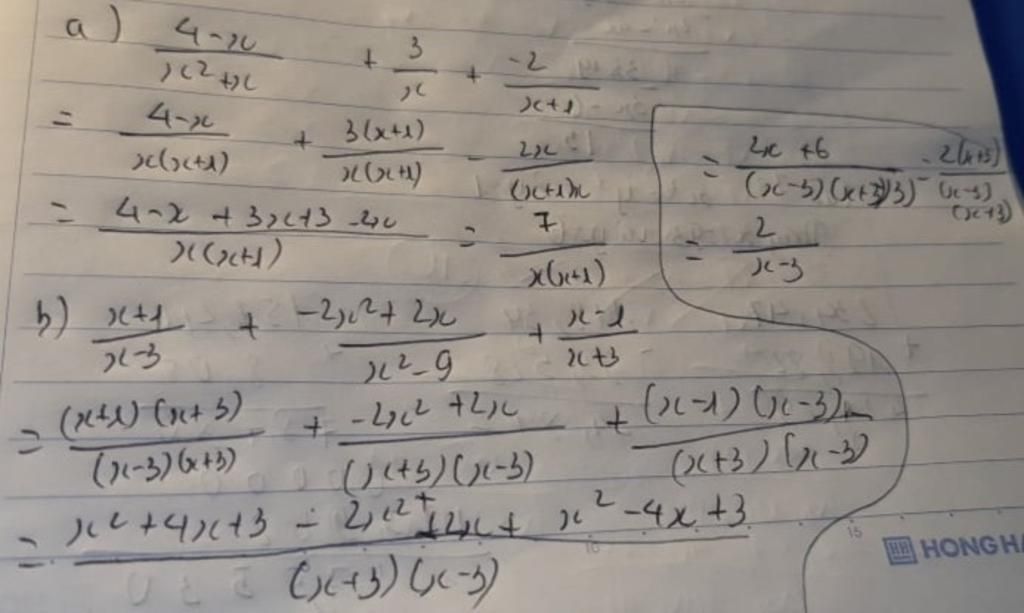 a) (4-x)/(x²+x) + 3/x + -2/(x+1)
= (4-x)/(x(x+1)) + 3(x+1)/(x(x+1)) - 2x/((x+1)x)
= (4-x+3x+3-2x)/(x(x+1)) = 7/(x(x+1))
b) (x+1)/(x-3) + (-2x²+2x)/(x²-9) + (x-1)/(x+3)
= (x+1)(x+3)/((x-3)(x+3)) + (-2x²+2x)/((x+3)(x-3)) + (x-1)(x-3)/((x+3)(x-3))
= (x²+4x+3-2x²+2x+x²-4x+3)/((x+3)(x-3))
= (2x+6)/((x-3)(x+3)) = 2(x+3)/((x-3)(x+3))
= 2/(x-3)
10 15
HH HONG HA